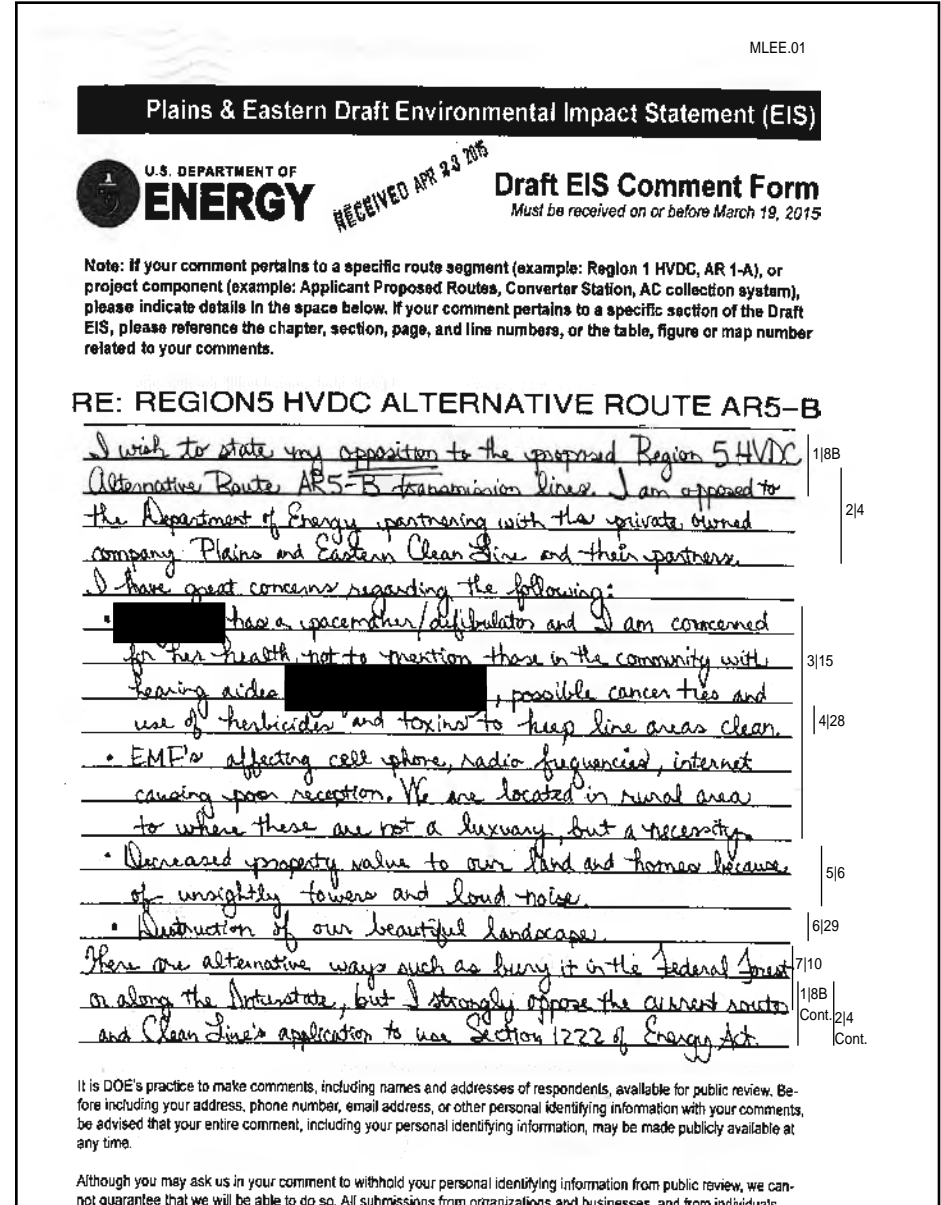 MLEE.01
Plains & Eastern Draft Environmental Impact Statement (EIS)
U.S. DEPARTMENT OF
ENERGY
RECEIVED APR 23 2015
Draft EIS Comment Form
Must be received on or before March 19, 2015
Note: If your comment pertains to a specific route segment (example: Region 1 HVDC, AR 1-A), or
project component (example: Applicant Proposed Routes, Converter Station, AC collection system),
please indicate details in the space below. If your comment pertains to a specific section of the Draft
EIS, please reference the chapter, section, page, and line numbers, or the table, figure or map number
related to your comments.
RE: REGION5 HVDC ALTERNATIVE ROUTE AR5-B
I wish to state my opposition to the proposed Region 5 HVDC 1|8B
Alternative Route AR5-B transmission lines. I am opposed to
the Department of Energy partnering with the private owned 2|4
company Plains and Eastern Clean Line and their partners.
I have great concerns regarding the following:
• has a pacemaker/defibulator and I am concerned
for her health, not to mention those in the community with 3|15
hearing aides , possible cancer ties and
use of herbicides and toxins to keep line areas clean. 4|28
• EMF's affecting cell phone, radio frequencies, internet
causing poor reception. We are located in rural area
to where these are not a luxuary, but a necessity.
• Decreased property value to our land and homes because 5|6
of unsightly towers and loud noise.
• Destruction of our beautiful landscape. 6|29
There are alternative ways such as bury it in the Federal Forest 7|10
or along the Interstate, but I strongly oppose the current route 1|8B Cont.
and Clean Line's application to use Section 1222 of Energy Act. 2|4 Cont.
It is DOE's practice to make comments, including names and addresses of respondents, available for public review. Be-
fore including your address, phone number, email address, or other personal identifying information with your comments,
be advised that your entire comment, including your personal identifying information, may be made publicly available at
any time.
Although you may ask us in your comment to withhold your personal identifying information from public review, we can-
not guarantee that we will be able to do so. All submissions from organizations and businesses, and from individuals